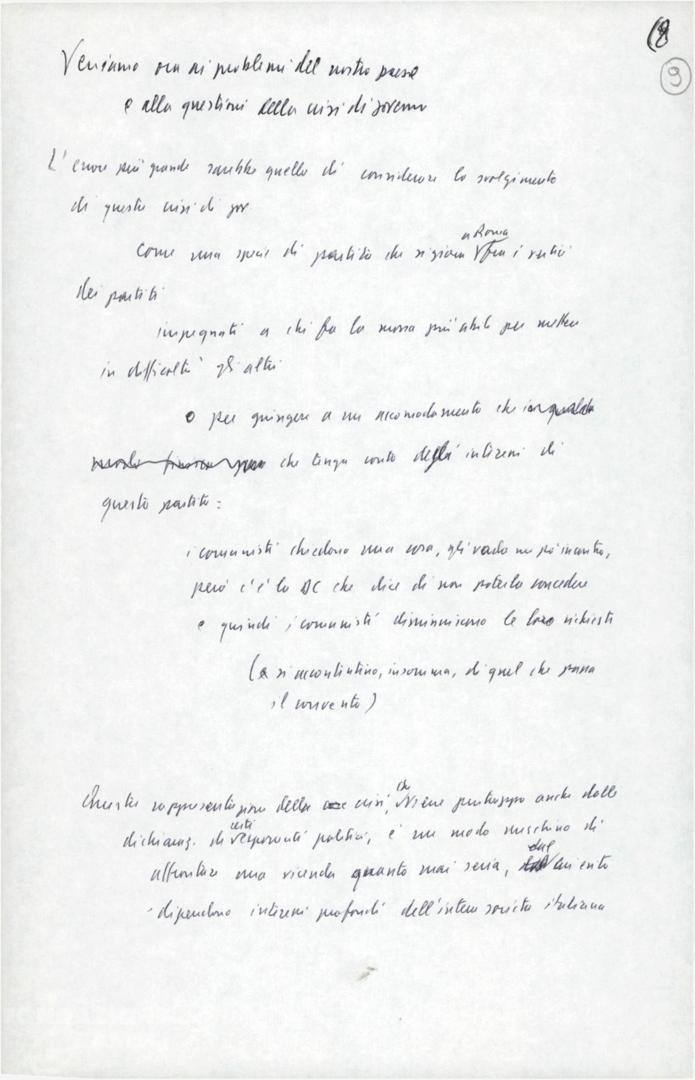 (8
9
Veniamo ora ai problemi del nostro paese
e alla questioni della crisi di governo
L'errore più grande sarebbe quello di considerare lo svolgimento
di questa crisi di gov
come una specie di partita che si gioca a Roma fra i vertici
dei partiti
impegnati a chi fa la mossa più abile per mettere
in difficoltà gli altri
o per giungere a un accomodamento che in qualche
modo che tenga conto degli interessi di
questo partito:
i comunisti chiedono una cosa, gli vado un po' incontro,
però c'è la DC che dice di non poterlo concedere
e quindi i comunisti diminuiscono le loro richieste
(e si accontentino, insomma, di quel che passa
il convento)
Questa rappresentazione della crisi, che viene purtroppo anche dalle
dichiaraz. di certi esponenti politici, è un modo meschino di
affrontare una vicenda quanto mai seria, dal cui esito
dipendono interessi profondi dell'intera società italiana